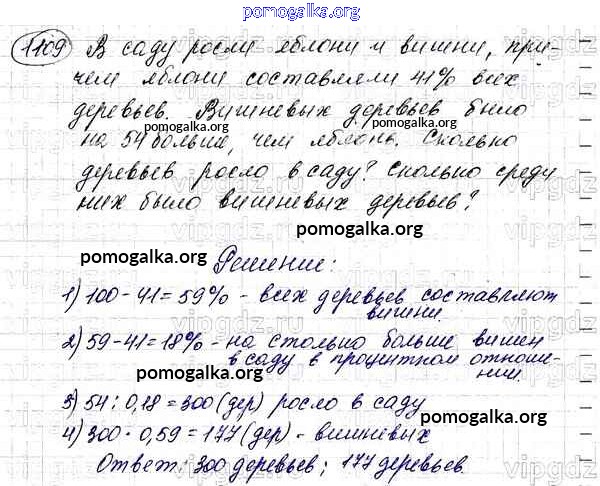 pomogalka.org
1109 В саду росли яблони и вишни, при-
чем яблони составляли 41% всех
деревьев. Вишневых деревьев было
pomogalka.org pomogalka.org
на 54 больше, чем яблонь. Сколько
деревьев росло в саду? Сколько среди
них было вишневых деревьев?
pomogalka.org pomogalka.org
Решение:
1) 100 - 41 = 59% - всех деревьев составляют
вишни.
pomogalka.org
2) 59 - 41 = 18% - на столько больше вишен
в саду в процентном отноше-
нии.
pomogalka.org
3) 54 : 0,18 = 300 (дер) росло в саду
pomogalka.org
4) 300 · 0,59 = 177 (дер) - вишневых
Ответ: 300 деревьев; 177 деревьев.
pomogalka.org